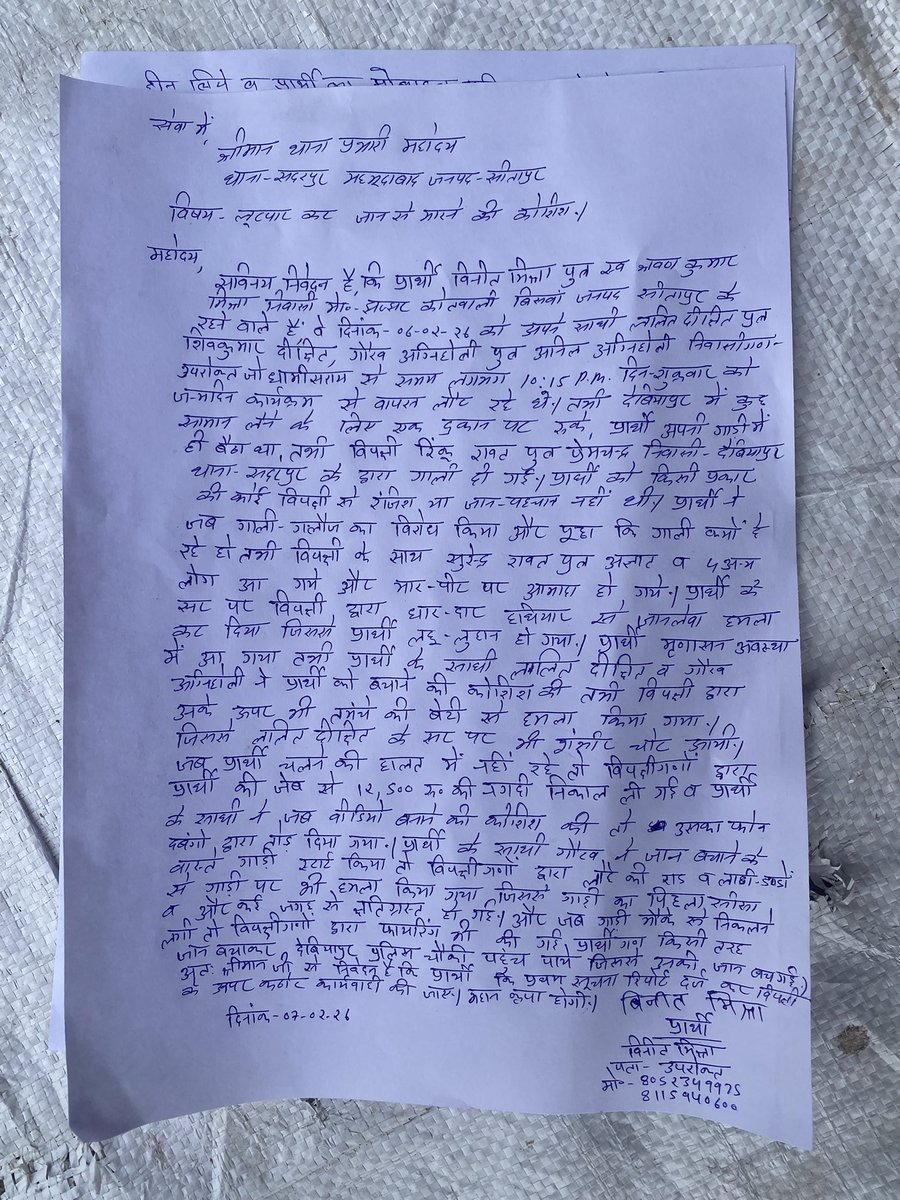 हीन लिये व प्रार्थी का मोबाइल
सेवा में,
श्रीमान थाना प्रभारी महोदय
थाना-सदरपुर महमूदाबाद जनपद-सीतापुर
विषय- लूटपाट कर जान से मारने की कोशिश।
महोदय,
सविनय निवेदन है, कि प्रार्थी विनीत मिश्रा पुत्र स्व श्रवण कुमार
मिश्रा निवासी मो०- कोतवाली बिसवां जनपद सीतापुर के
रहने वाले हैं वे दिनांक-06-02-26 को अपने साथी ललित दीक्षित पुत्र
शिवकुमार दीक्षित, गौरव अग्निहोत्री पुत्र अनिल अग्निहोत्री निवासीगण-
उपरोक्त जो से समय लगभग 10:15 P.M. दिन-शुक्रवार को
जन्मदिन कार्यक्रम से वापस लौट रहे थे। तभी देबियापुर में कुछ
सामान लेने के लिए एक दुकान पर रुके, प्रार्थी अपनी गाडी में
ही बैठा था, तभी विपक्षी रिंकू रावत पुत्र प्रेमचन्द्र निवासी- देबियापुर
थाना-सदरपुर के द्वारा गाली दी गई। प्रार्थी को किसी प्रकार
की कोई विपक्षी से रंजिश या जान-पहचान नहीं थी। प्रार्थी ने
जब गाली-गलौज का विरोध किया और पूछा कि गाली क्यों दे
रहे हो तभी विपक्षी के साथ सुरेन्द्र रावत पुत्र अज्ञात व 5 अन्य
लोग आ गये और मार-पीट पर आमादा हो गये। प्रार्थी के
सर पर विपक्षी द्वारा धार-दार हथियार से जानलेवा हमला
कर दिया जिससे प्रार्थी लहू-लुहान हो गया। प्रार्थी मृणासन अवस्था
में आ गया तभी प्रार्थी के साथी ललित दीक्षित व गौरव
अग्निहोत्री ने प्रार्थी को बचाने की कोशिश की तभी विपक्षी द्वारा
उनके ऊपर भी तमंचे की बेटी से हमला किया गया।
जिससे ललित दीक्षित के सर पर भी गंभीर चोट आयी।
जब प्रार्थी चलने की हालत में नहीं रहे तो विपक्षीगणों द्वारा
प्रार्थी की जेब से 12,500 रु० की नगदी निकाल ली गई व प्रार्थी
के साथी ने जब वीडियो बनाने की कोशिश की तो उसका फोन
दबंगो द्वारा तोड़ दिया गया। प्रार्थी के साथी गौरव ने जान बचाने के
वास्ते गाडी स्टार्ट किया तो विपक्षीगणों द्वारा लोहे की राड व लाठी-डण्डों
से गाडी पर भी हमला किया गया जिससे गाडी का पिछला सीसा
व और कई जगह से क्षतिग्रस्त हो गई। और जब गाडी मौके से निकलने
लगी तो विपक्षीगणों द्वारा फायरिंग भी की गई प्रार्थी गण किसी तरह
जान बचाकर देबियापुर पुलिस चौकी पहुंच पाये जिससे उनकी जान बच गई।
अतः श्रीमान जी से निवेदन है कि प्रार्थी कि प्रथम सूचना रिपोर्ट दर्ज कर विपक्षी
के ऊपर कठोर कार्यवाही की जाए। महान कृपा होगी।
विनीत मिश्रा
दिनांक-07-02-26
प्रार्थी
विनीत मिश्रा
पता- उपरोक्त
मो०- 8052349975
8115940600